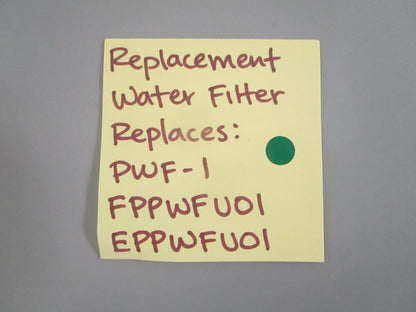 Replacement
Water Filter
Replaces:
PWF-1
FPPWFU01
EPPWFU01